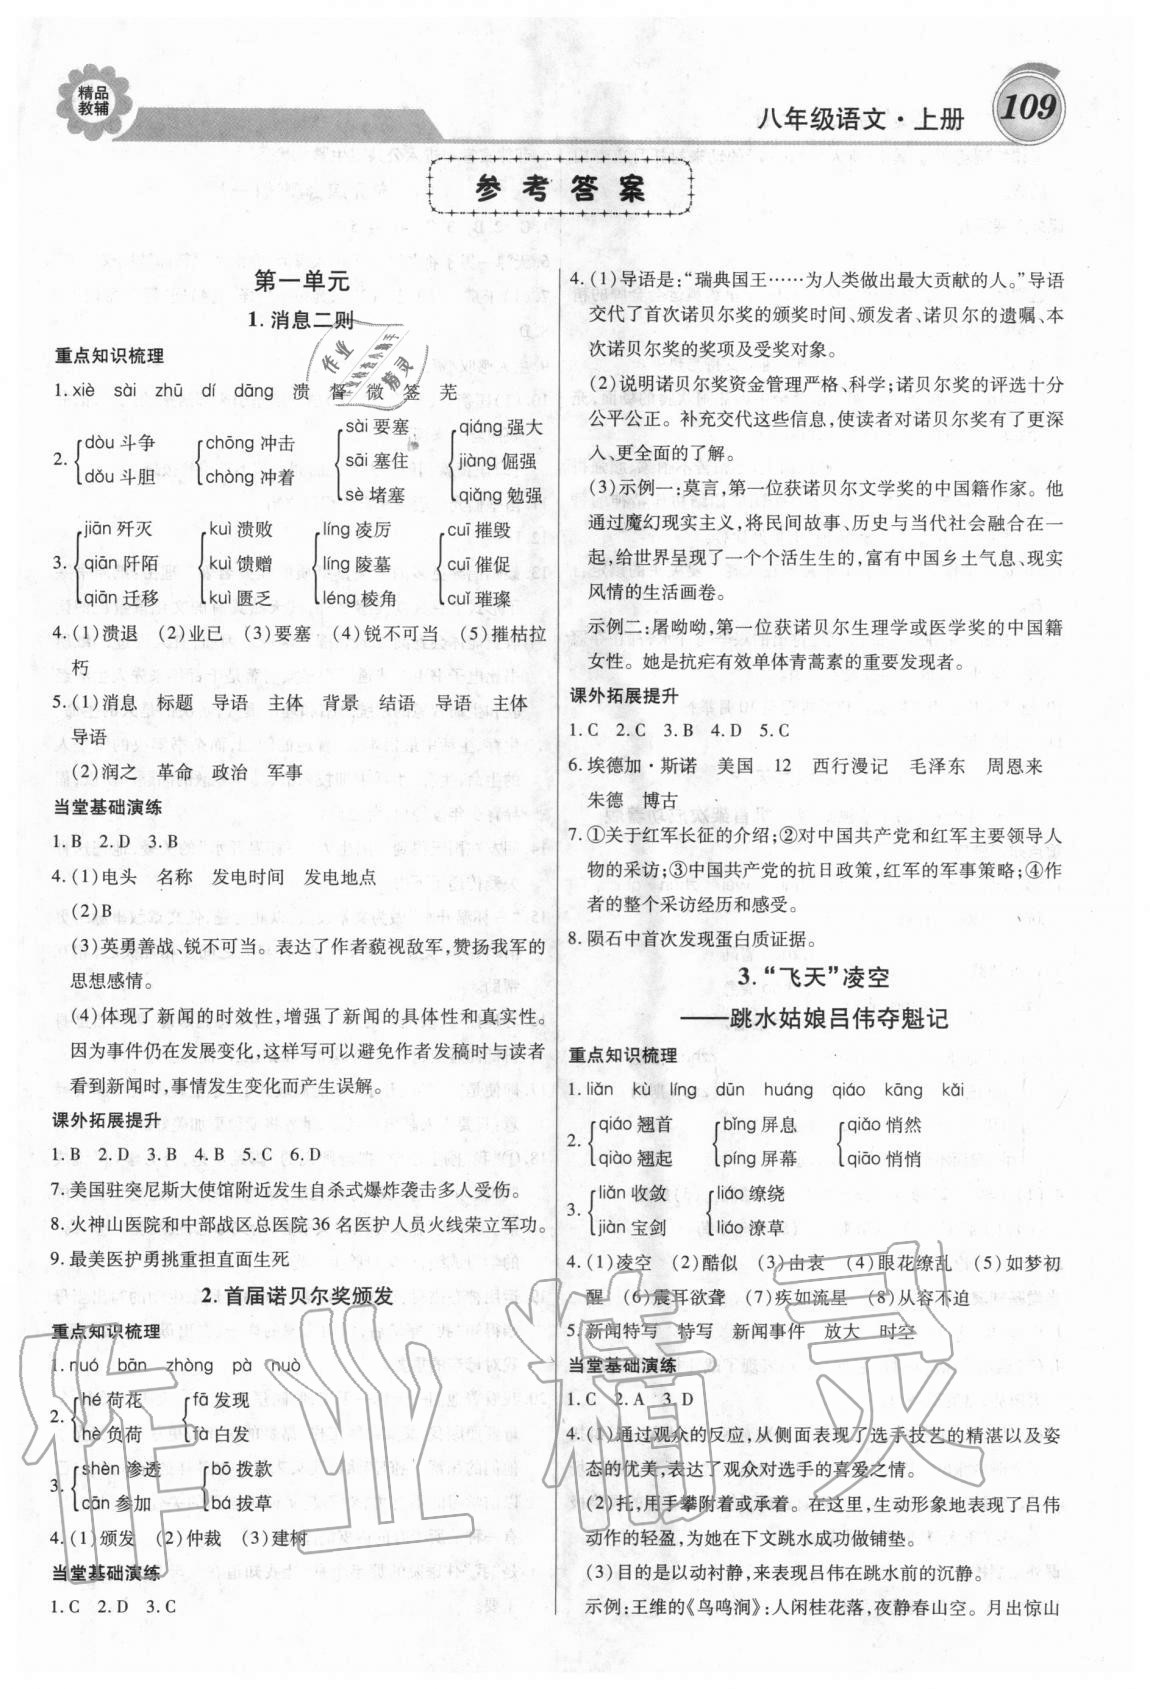 精品
教辅
八年级语文·上册
109
参考答案
第一单元
1. 消息二则
重点知识梳理
1. xiè sài zhū dí dāng 溃 督 微 签 芜
2. dòu 斗争 dǒu 斗胆 chōng 冲击 chòng 冲着 sài 要塞 sāi 塞住 sè 堵塞 qiáng 强大 jiàng 倔强 qiǎng 勉强
3. jiān 歼灭 qiān 阡陌 qiān 迁移 kuì 溃败 kuì 馈赠 kuì 匮乏 líng 凌厉 líng 陵墓 léng 棱角 cuī 摧毁 cuī 催促 cuǐ 璀璨
4. (1)溃退 (2)业已 (3)要塞 (4)锐不可当 (5)摧枯拉
朽
5. (1)消息 标题 导语 主体 背景 结语 导语 主体
导语
(2)润之 革命 政治 军事
当堂基础演练
1. B 2. D 3. B
4. (1)电头 名称 发电时间 发电地点
(2)B
(3)英勇善战、锐不可当。表达了作者藐视敌军,赞扬我军的
思想感情。
(4)体现了新闻的时效性,增强了新闻的具体性和真实性。
因为事件仍在发展变化,这样写可以避免作者发稿时与读者
看到新闻时,事情发生变化而产生误解。
课外拓展提升
1. B 2. D 3. B 4. B 5. C 6. D
7. 美国驻突尼斯大使馆附近发生自杀式爆炸袭击多人受伤。
8. 火神山医院和中部战区总医院 36 名医护人员火线荣立军功。
9. 最美医护勇挑重担直面生死
2. 首届诺贝尔奖颁发
重点知识梳理
1. nuó bān zhòng pà nuò
2. hé 荷花 hè 负荷 fā 发现 fà 白发
3. shèn 渗透 cān 参加 bō 拨款 bá 拔草
4. (1)颁发 (2)仲裁 (3)建树
当堂基础演练
1. C 2. D 3. C
4. (1)导语是:“瑞典国王……为人类做出最大贡献的人。”导语
交代了首次诺贝尔奖的颁奖时间、颁发者、诺贝尔的遗嘱、本
次诺贝尔奖的奖项及受奖对象。
(2)说明诺贝尔奖资金管理严格、科学;诺贝尔奖的评选十分
公平公正。补充交代这些信息,使读者对诺贝尔奖有了更深
入、更全面的了解。
(3)示例一:莫言,第一位获诺贝尔文学奖的中国籍作家。他
通过魔幻现实主义,将民间故事、历史与当代社会融合在一
起,给世界呈现了一个个活生生的,富有中国乡土气息、现实
风情的生活画卷。
示例二:屠呦呦,第一位获诺贝尔生理学或医学奖的中国籍
女性。她是抗疟有效单体青蒿素的重要发现者。
课外拓展提升
1. C 2. C 3. B 4. D 5. C
6. 埃德加·斯诺 美国 12 西行漫记 毛泽东 周恩来
朱德 博古
7. ①关于红军长征的介绍;②对中国共产党和红军主要领导人
物的采访;③中国共产党的抗日政策,红军的军事策略;④作
者的整个采访经历和感受。
8. 陨石中首次发现蛋白质证据。
3. “飞天”凌空
——跳水姑娘吕伟夺魁记
重点知识梳理
1. liǎn kù líng dūn huáng qiáo kāng kǎi
2. qiáo 翘首 qiào 翘起 bǐng 屏息 píng 屏幕 qiǎo 悄然 qiāo 悄悄
3. liǎn 收敛 jiàn 宝剑 liáo 缭绕 liáo 潦草
4. (1)凌空 (2)酷似 (3)由衷 (4)眼花缭乱 (5)如梦初
醒 (6)震耳欲聋 (7)疾如流星 (8)从容不迫
5. 新闻特写 特写 新闻事件 放大 时空
当堂基础演练
1. C 2. A 3. D
4. (1)通过观众的反应,从侧面表现了选手技艺的精湛以及姿
态的优美,表达了观众对选手的喜爱之情。
(2)托,用手攀附着或承着。在这里,生动形象地表现了吕伟
动作的轻盈,为她在下文跳水成功做铺垫。
(3)目的是以动衬静,来表现吕伟在跳水前的沉静。
示例:王维的《鸟鸣涧》:人闲桂花落,夜静春山空。月出惊山
作业精灵